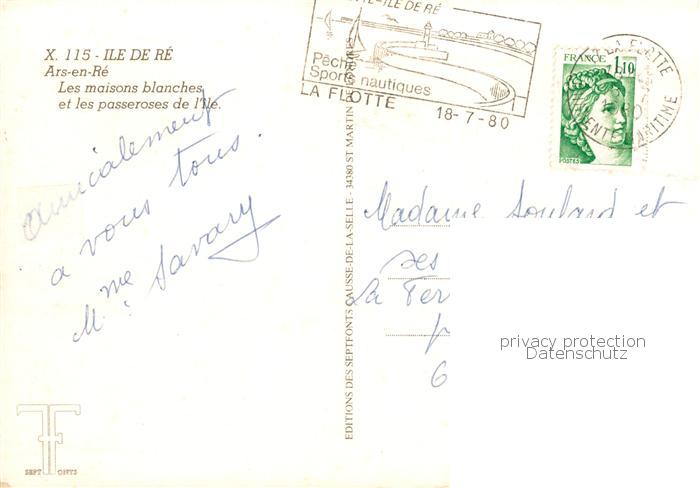 X. 115 - ILE DE RÉ
Ars-en-Ré
Les maisons blanches
et les passeroses de l'Ile.
amicalement
a vous tous.
Mme Savary
SEPT FONTS
EDITIONS DES SEPTFONTS CAUSSE-DE-LA-SELLE - 34380 ST MARTIN DE LONDRES
ILE DE RÉ
Pêche
Sports nautiques
LA FLOTTE
18-7-80
LA FLOTTE
MARITIME
FRANCE
1,10
POSTES
Madame Soulard et
ses
La Fer
6
privacy protection
Datenschutz